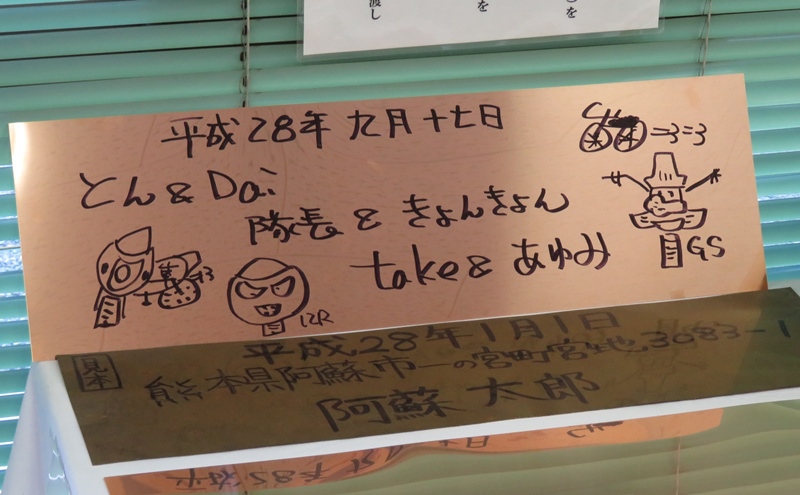 をを渡し
平成28年 九月十七日
とん&Dai
隊長&きょんきょん
take&あゆみ
GS
12R
見本
平成28年1月1日
熊本県阿蘇市一の宮町宮地3083-1
阿蘇 太郎